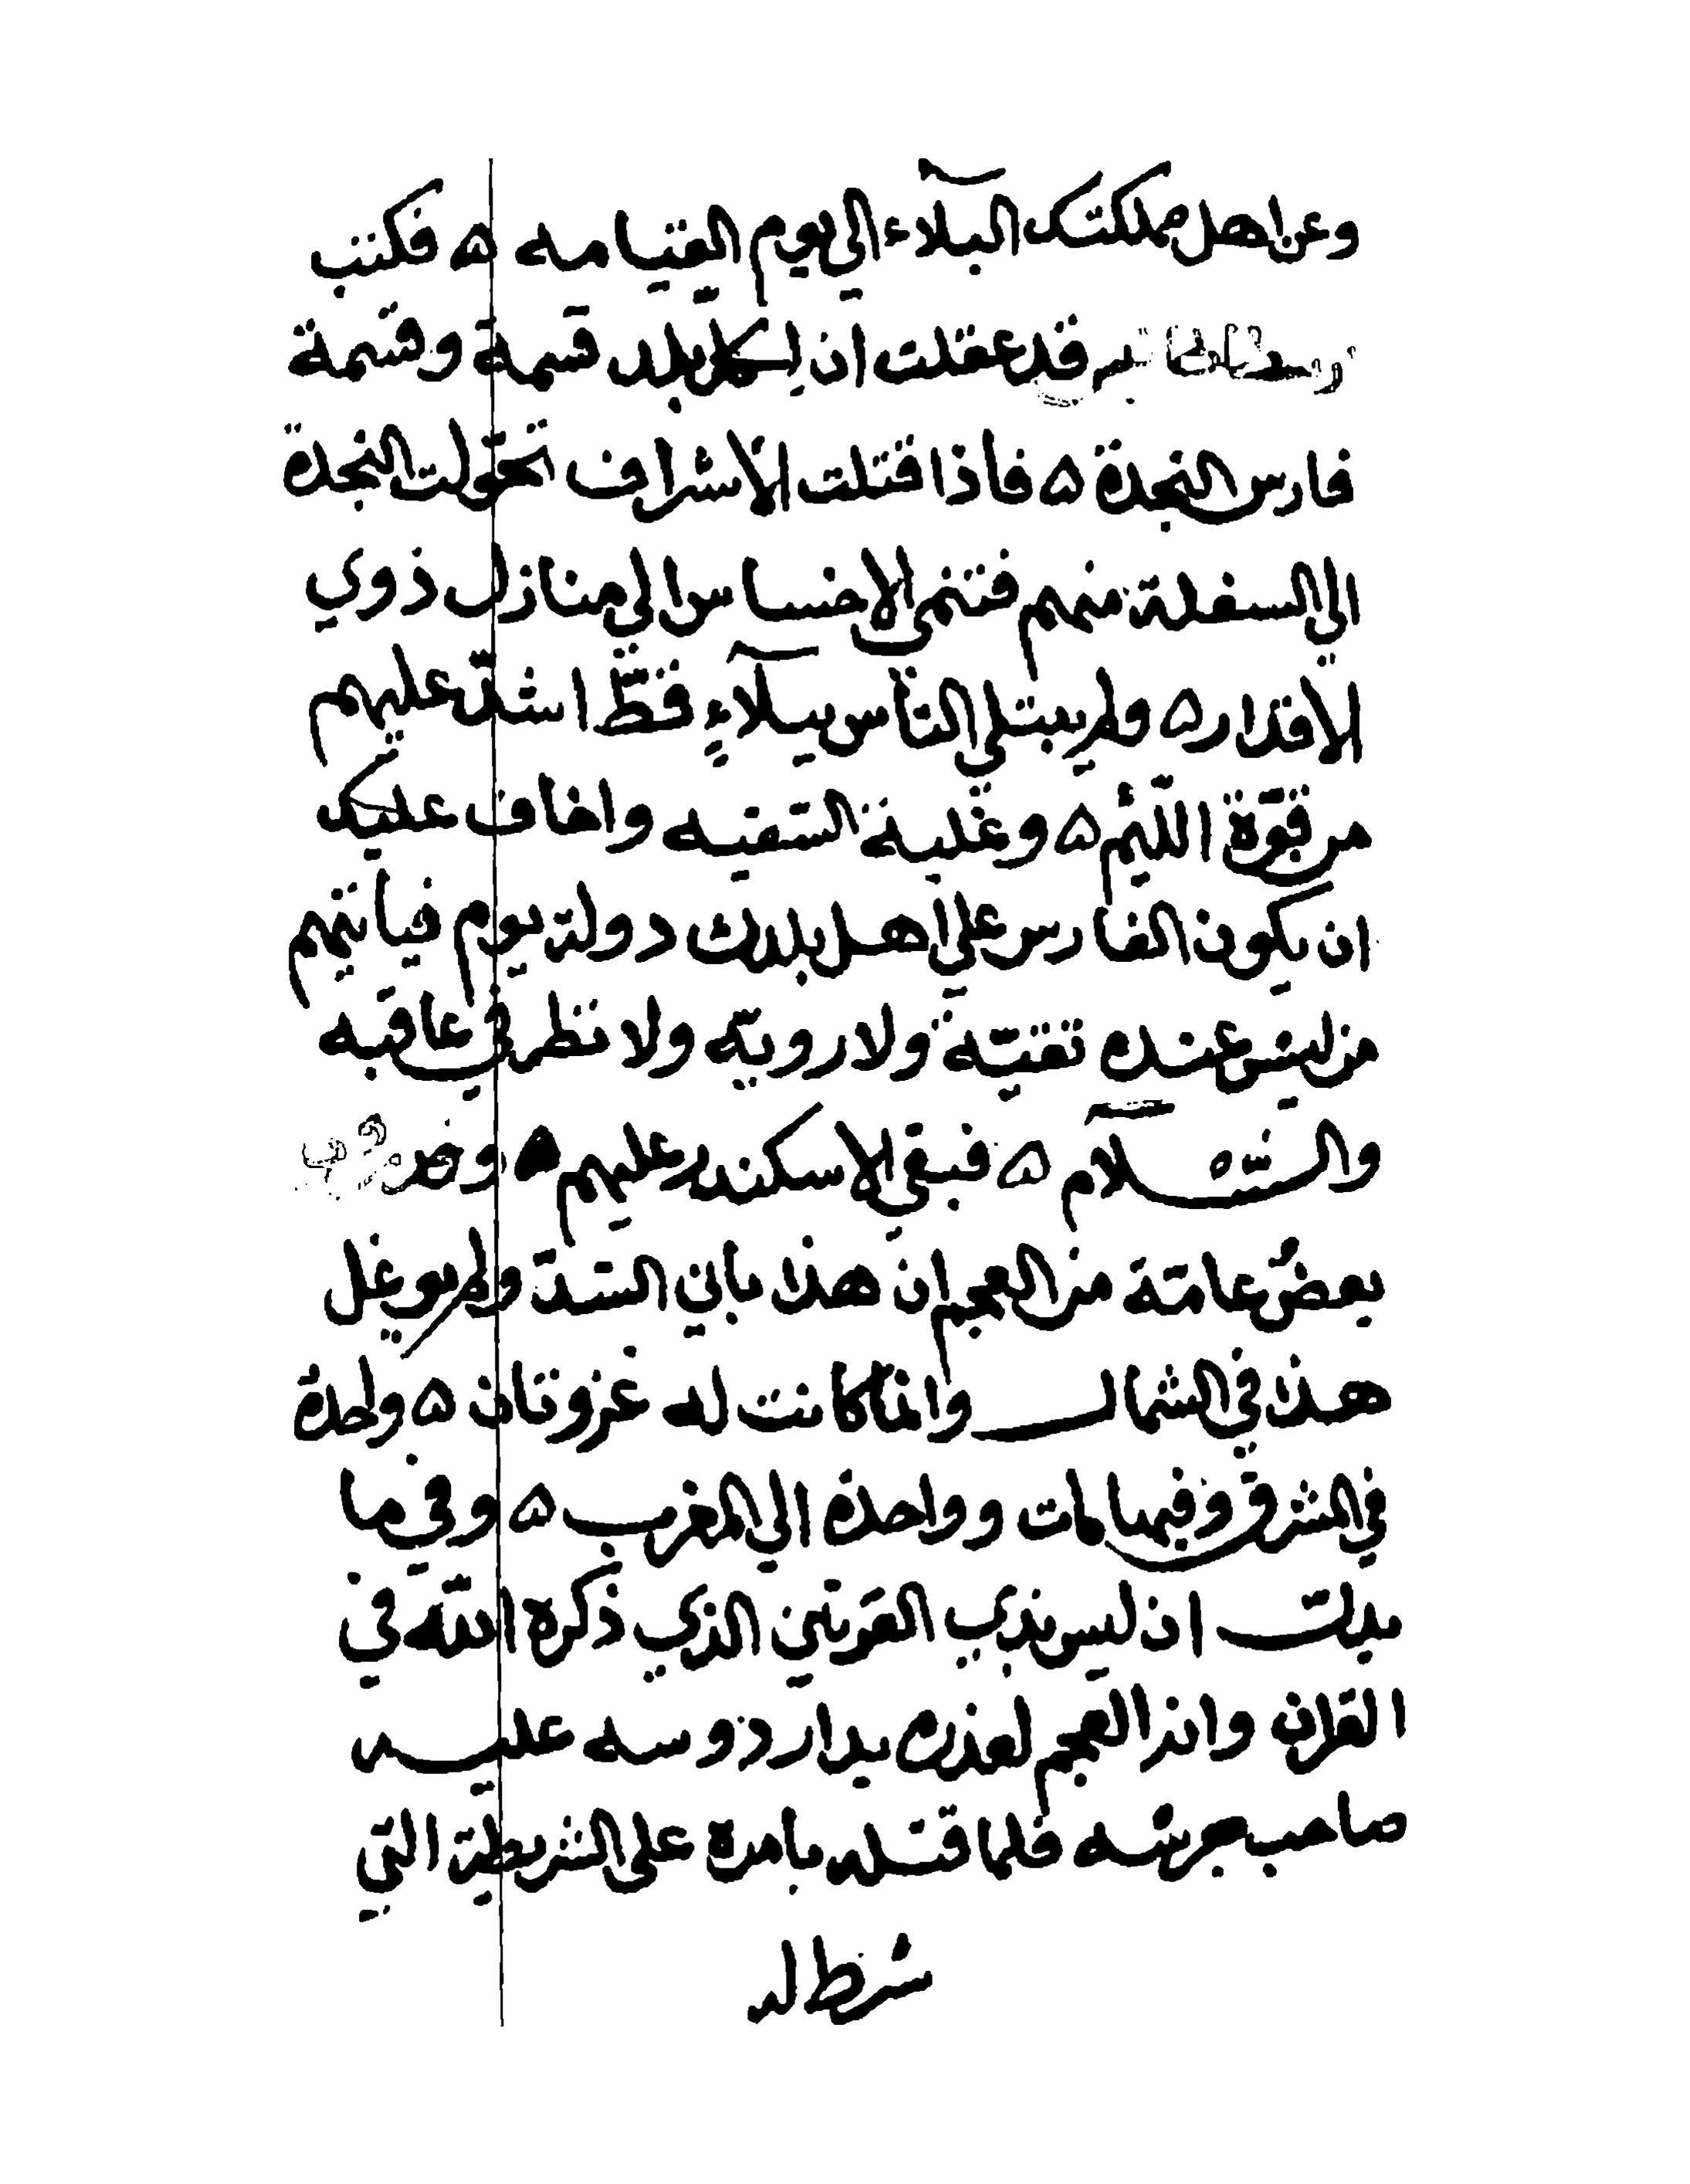 وعن اهل مملكتك البلآء الي يوم القيامه ه فكتب
قد عقلت ان لكل بلد قسمة وقسمة
فارس النجدة ه فاذا قتلت الاشراف تحوّلت النجدة
الي السفلة منهم فتنمى الاخساس الي منازل ذوي
الاقدار ه ولم يبتلي النّاس ببلآءٍ قطّ اشدّ عليهم
من قوة اللئيم ه وغلبة السّفيه واخاف عليك
ان يكون الفارس علي اهل بلدك دولة يوم فياتيهم
من ليس عنده تقيّة ولا رويّه ولا نظر في عاقبه
والسّلآم ه فبقي الاسكندر عليهم ه وخبر
بعضُ عامّة من العجم ان هذا باني السّدّ ولم يوغل
هذا في الشمال وانّما كانت له غزوتان ه واحدة
في الشرق وفيها مات وواحدة الي المغرب ه وفي ما
بدلت ان ليس بذي القرنين الذي ذكره اللّه في
القران وان العجم لعذره بدار دوسه عليه
صاحب حرسه فلما قتله بامره على الشريطة التي
شرط له